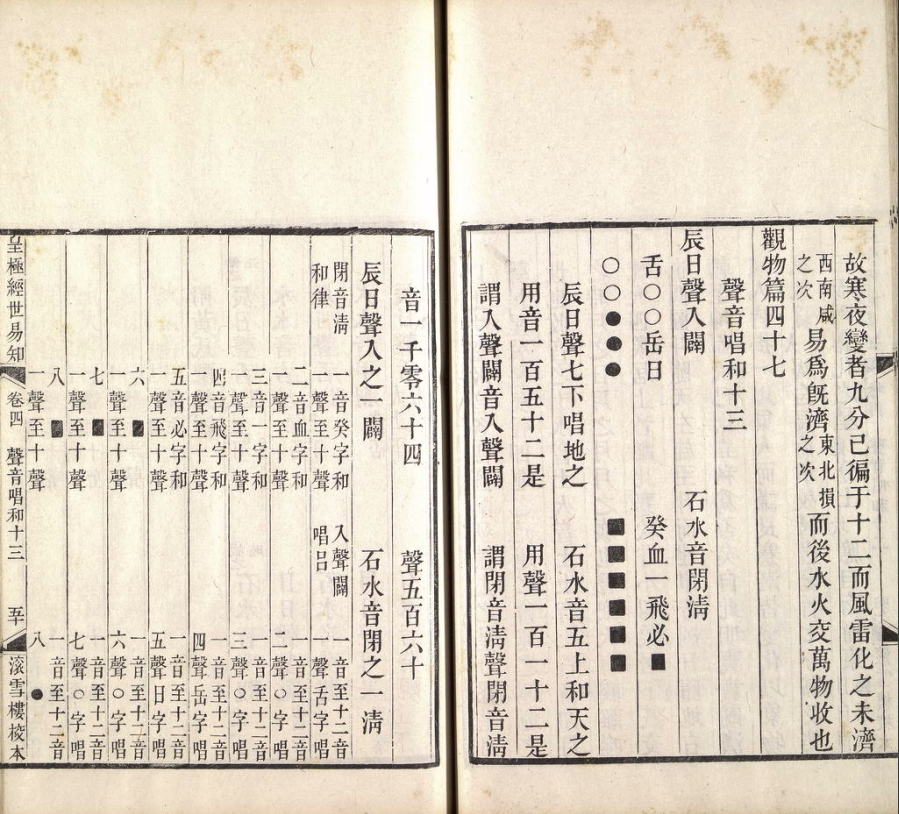 故寒夜變者九分已徧于十二而風雷化之未濟
西南咸之次易爲旣濟東北損之次而後水火交萬物收也
觀物篇四十七
聲音唱和十三
辰日聲入闢 石水音閉淸
舌〇〇〇岳日 癸血一飛必■
〇〇●●● ■■■■■■
辰日聲七下唱地之 石水音五上和天之
用音一百五十二是 用聲一百一十二是
謂入聲闢音入聲闢 謂閉音淸聲閉音淸
音一千零六十四 聲五百六十
辰日聲入之一闢 石水音閉之一淸
閉音淸和律 一音癸字和一聲至十聲 入聲闢唱呂 一音至十二音一聲舌字唱
二音血字和一聲至十聲 一音至十二音二聲〇字唱
三音一字和一聲至十聲 一音至十二音三聲〇字唱
四音飛字和一聲至十聲 一音至十二音四聲岳字唱
五音必字和一聲至十聲 一音至十二音五聲日字唱
六■一聲至十聲 一音至十二音六聲〇字唱
七■一聲至十聲 一音至十二音七聲〇字唱
八■一聲至十聲 一音至十二音八●
皇極經世易知 卷四 聲音唱和十三 滚雪樓校本